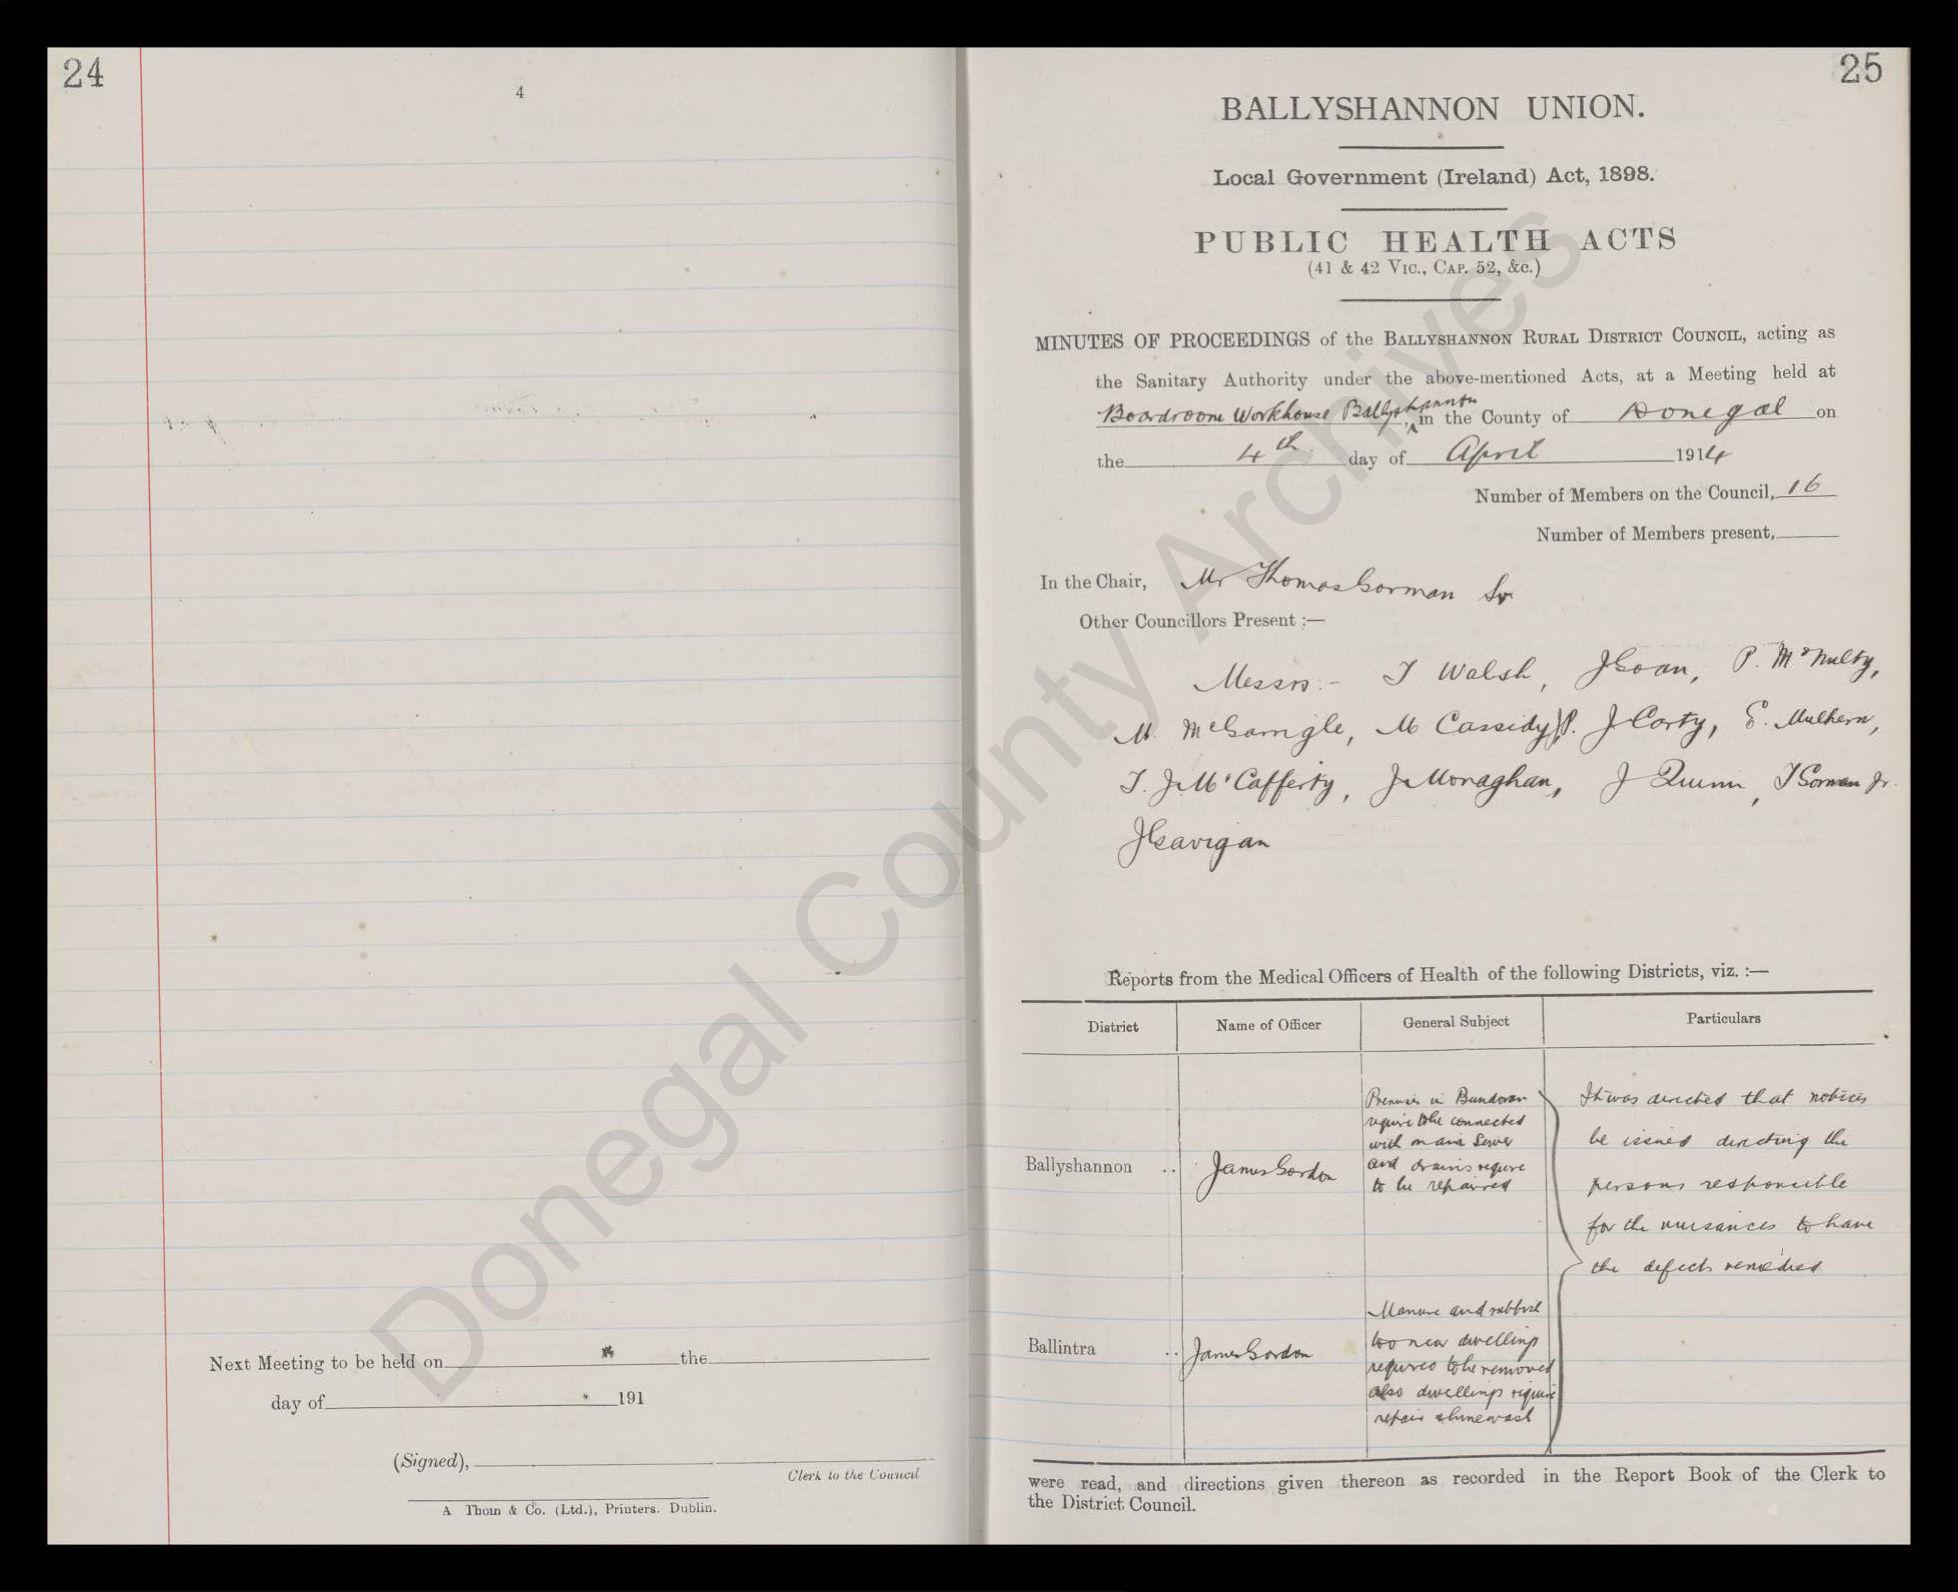 24
4
Next Meeting to be held on the
day of 191
(Signed),
Clerk to the Council
A Thom & Co. (Ltd.), Printers. Dublin.
25
BALLYSHANNON UNION.
Local Government (Ireland) Act, 1898.
PUBLIC HEALTH ACTS
(41 & 42 Vic., Cap. 52, &c.)
MINUTES OF PROCEEDINGS of the Ballyshannon Rural District Council, acting as
the Sanitary Authority under the above-mentioned Acts, at a Meeting held at
Boardroom Workhouse Ballyshannon, in the County of Donegal on
the 4th day of April 1914
Number of Members on the Council, 16
Number of Members present,
In the Chair, Mr Thomas Gorman Sr
Other Councillors Present :—
Messrs:- T Walsh, J Goan, P. McNulty,
M. McGarrigle, M Cassidy, P. J Corty, E. Mulhern,
T. J. McCafferty, J Monaghan, J Quinn, T Gorman Jr.
J Gavigan
Reports from the Medical Officers of Health of the following Districts, viz. :—
District Name of Officer General Subject Particulars
Ballyshannon .. James Gordon
Premises in Bundoran
require to be connected
with main sewer
and drains require
to be repaired
It was directed that notices
be issued directing the
persons responsible
for the nuisances to have
the defects remedied
Ballintra .. James Gordon
Manure and rubbish
too near dwellings
requires to be removed
also dwellings require
repair & limewash
were read, and directions given thereon as recorded in the Report Book of the Clerk to
the District Council.
Donegal County Archives